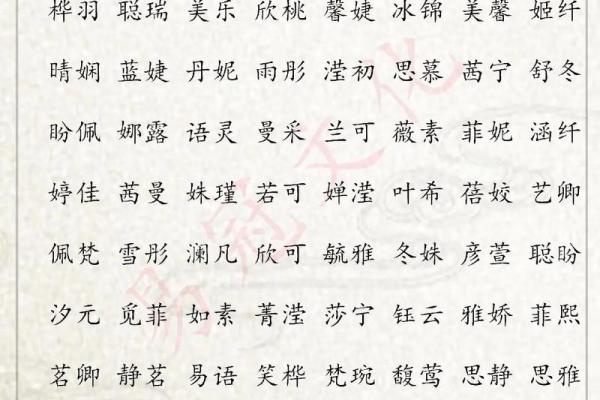 桦羽 聪瑞 美乐 欣桃 馨婕 冰锦 美馨 姬纤
晴娴 蓝婕 丹妮 雨彤 滢初 思慕 茜宁 舒冬
盼佩 娜露 语灵 曼采 兰可 薇素 菲妮 涵纤
婷佳 茜曼 姝瑾 若可 婵滢 叶希 蓓姣 艺卿
佩梵 雪彤 澜凡 欣可 毓雅 冬姝 彦萱 聪盼
汐元 觅菲 如素 菁滢 莎宁 钰云 雅娇 菲熙
茗卿 静茗 易语 笑桦 梵琬 馥莺 思静 思雅
易冠文化